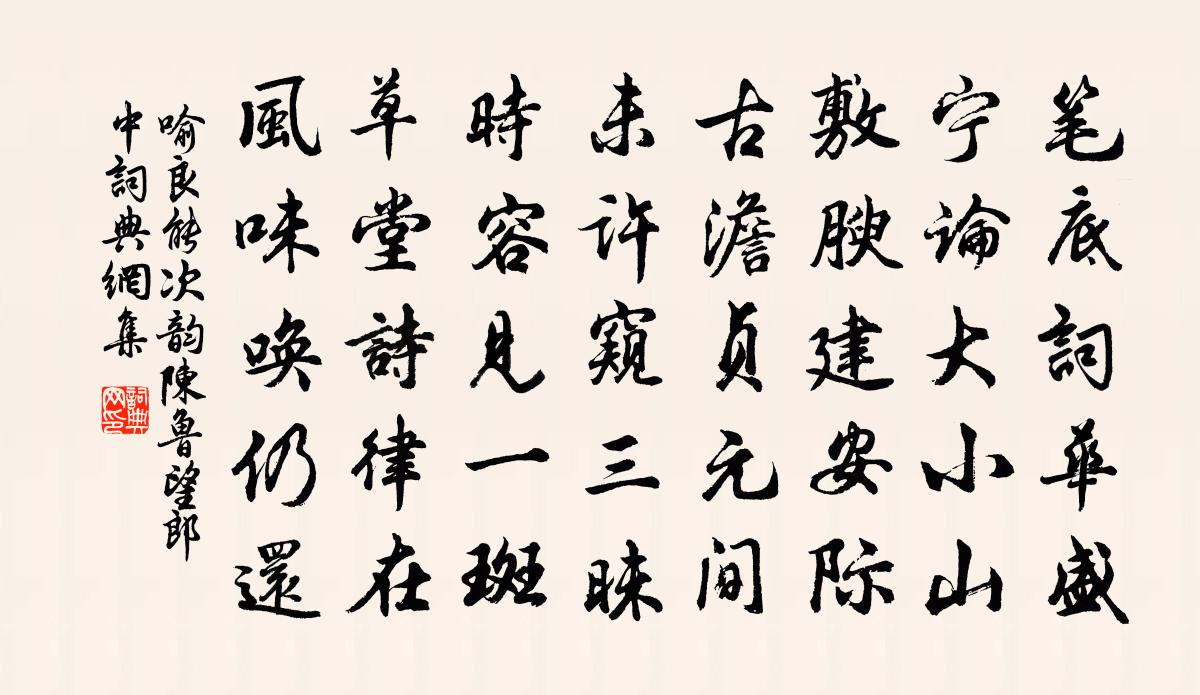 笔底詞華盛
宁論大小山
敷腴建安际
古澹貞元间
未許窺三昧
時容見一斑
草堂詩律在
風味喚仍還
喻良能次韵陳魯望郎
中詞典網集
詞典
网印